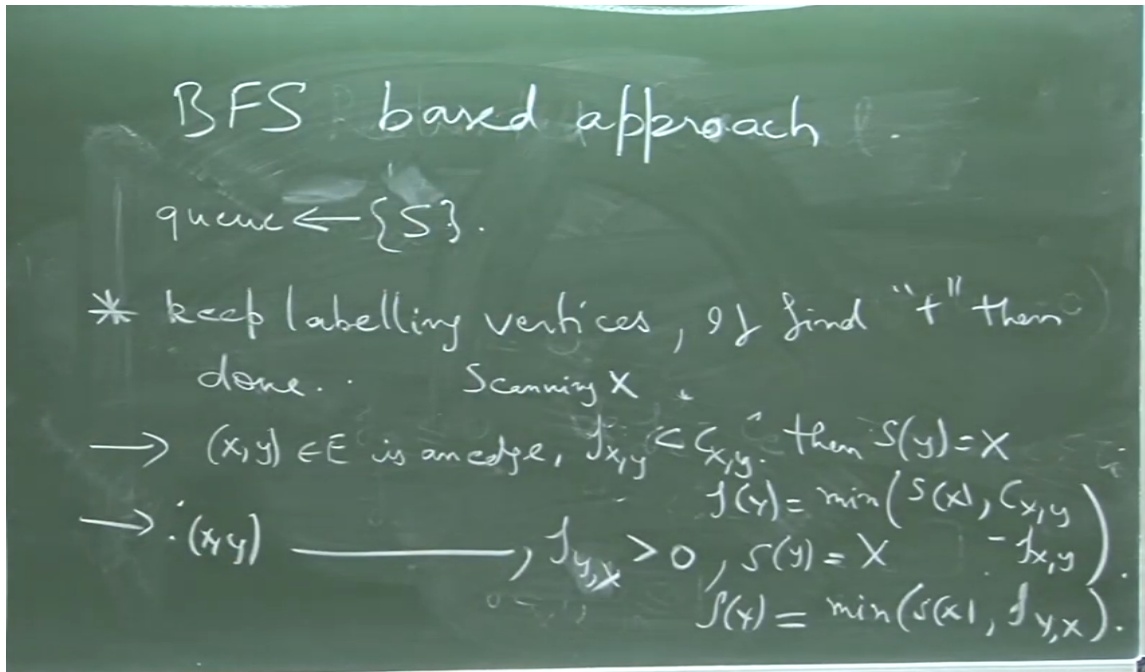 BFS based approach .
queue ← {S}.
* keep labelling vertices, If find "t" then
done.. Scanning X .
→ (x,y) ∈ E is an edge, f_{x,y} < C_{x,y}. then S(y) = X
f(y) = min(S(x), C_{x,y}
→ (x,y) ———, f_{y,x} > 0, S(y) = X - f_{x,y}).
f(y) = min(S(x), f_{y,x}).